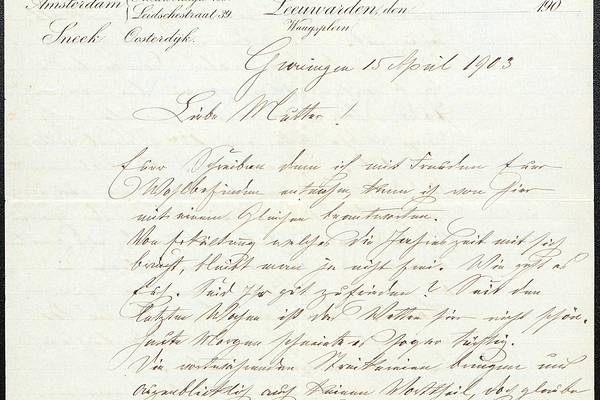 Amsterdam
Leidschestraat 39.
Leeuwarden, den 190
Waagsplein.
Sneek Oosterdijk.
Groningen 15 April 1903
Liebe Mutter!
Euer Schreiben dem ich mit Freuden Euer
Wohlbefinden entnehme kann ich von hier
mit einem Gleichen beantworten.
Von Erkältung welches die Jahreszeit mit sich
bringt, bleibt man ja nicht frei. Wie geht es
Euch. Seid Ihr gut zufrieden? Seit den
letzten Wochen ist das Wetter hier nicht schön.
Heute Morgen schneit es sogar tüchtig.
Die Streikereien bringen uns
augenblicklich auch keinen Vortheil, doch glaube